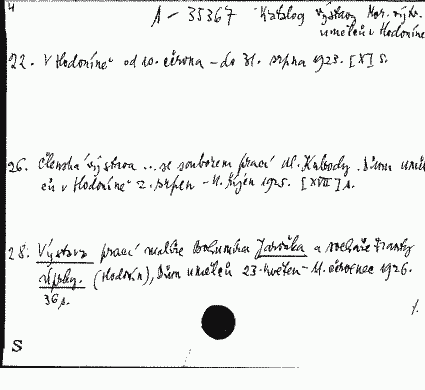 4
A - 35367 Katalog výstavy Mor. výtv.
umělců v Hodoníně
22. V Hodoníně od 10. června - do 31. srpna 1923. [X] s.
26. Členská výstava ... se souborem prací Ol. Kubody. Dům uměl
ců v Hodoníně 2. srpen - 11. říjen 1925. [XVII] s.
28. Výstava prací malíře Bohumíra Jaroňka a sochaře Franty
Úprky. (Hodonín), Dům umělců 23. květen - 11. červenec 1926.
36 s.
1.
S